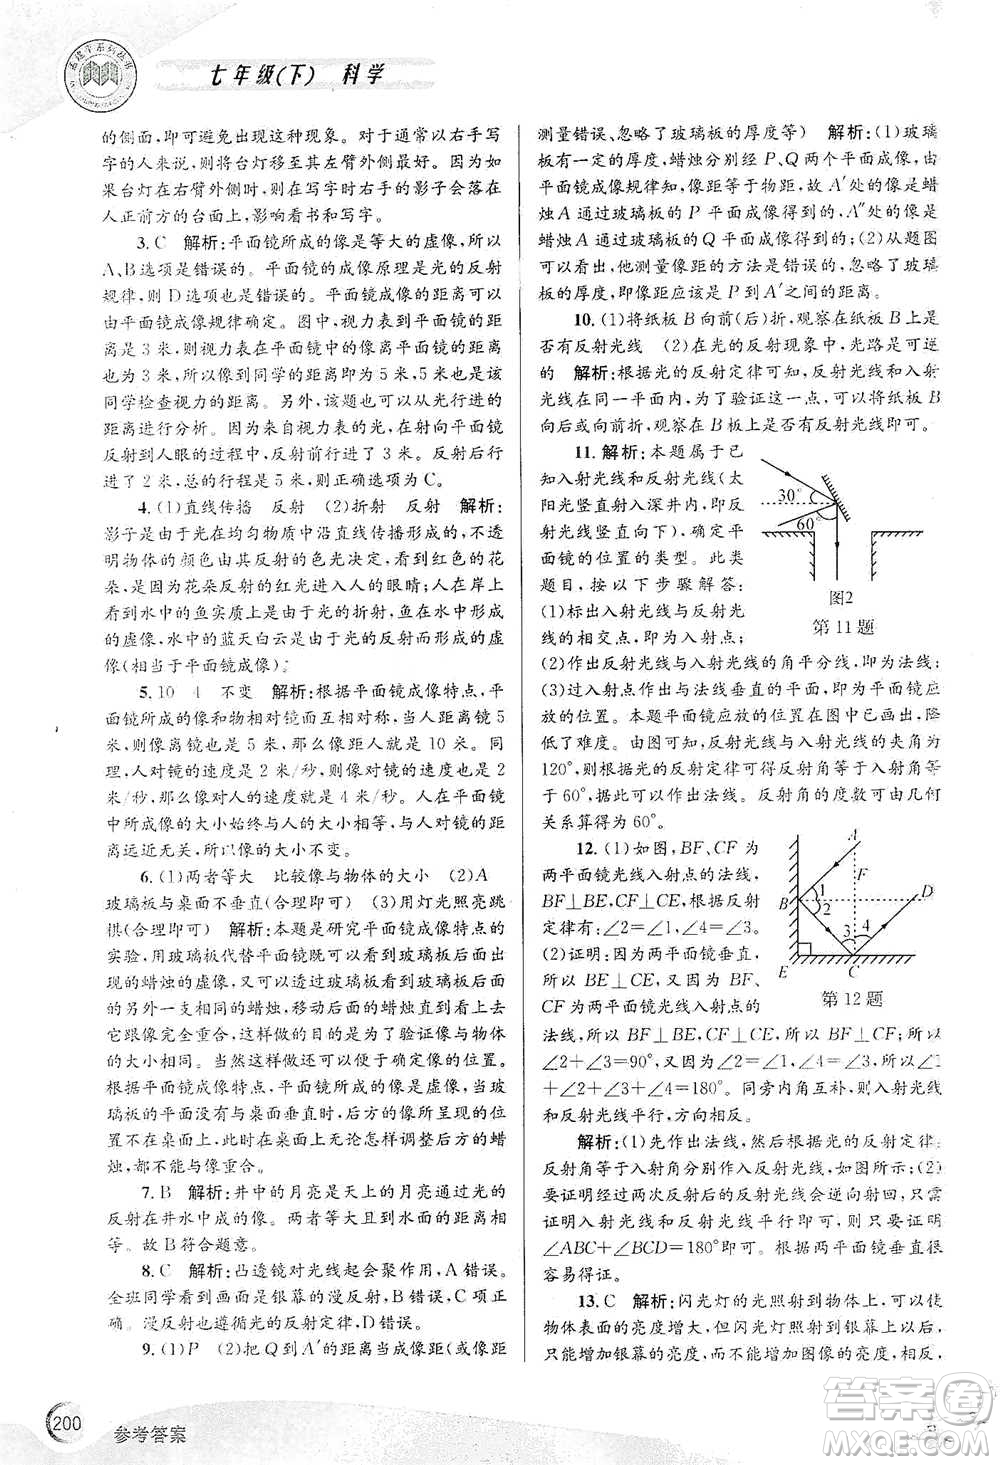 七年级(下) 科学
的侧面,即可避免出现这种现象。对于常以右手写
字的人来说,则将台灯移至其左臂外侧时。因为如
果台灯在右臂外侧时,在写字时右手的影子会落在
人正前方的台面上,影响看书和写字。
3. C 解析:平面镜所成的像是等大的虚像,所以
A、B选项是错误的。平面镜的成像原理是光的反射
规律,则D选项也是错误的。平面镜成像的距离可以
由平面镜成像规律确定。图中,视力表到平面镜的距
离是3米,则视力表在平面镜中的像离平面镜的距
离也是3米,所以像到同学的距离即为5米,这是该
同学检查视力的距离。另外,该题也可以从光行进的
过程分析。因为来自视力表的光,在射向平面镜又
反射到人眼的过程中,先行进了3米,反射后又行
进了2米,总的行程是5米。正确选项应为C。
4. (1)直线传播 反射 (2)折射 反射 解析:
影子是由于光在均匀物质中沿直线传播形成的,不透
明物体的颜色由其反射的色光决定,看到红色的花
朵,是因为花朵反射的红光进入人的眼睛;人在岸上
看到水中的鱼实质上是由于光的折射,在水中形成
的虚像,水中的蓝天白云是由于光的反射而形成的虚
像(相当于平面镜成像)。
5. 10 4 不变 解析:根据平面镜成像特点,平
面镜所成的像和物相对镜面对称,当人距镜5
米,那么像离镜也为5米,那么像距人就是10米。同
理,人对镜的速度是2米/秒,像对镜的速度也是2
米/秒,那么像对人的速度就是4米/秒。人在平面镜
中所成像的大小始终与人的大小相等,与距离镜的
远近无关,所以像的大小不变。
6. (1)两者等大 比较像与物体的大小 (2)A
玻璃板与桌面不垂直(合理即可) (3)用灯光照亮跳
棋(合理即可) 解析:本题是研究平面镜成像特点的
实验,用玻璃板代替平面镜,既可以透过玻璃板看到前
面的蜡烛的虚像,又可以透过玻璃板看到放在后面
的另外一支相同的蜡烛,移动后面的蜡烛直到去与
它跟像完全重合,这样做的目的是为了验证像与物体
的大小相同。同时,这样做也便于确定像的位置。
根据平面镜成像特点,平面镜所成的像是正立的,当玻
璃板的平面没有与桌面垂直时,后方的像所呈现的位
置不在桌面上,因此在桌面上无论怎样调整后方的蜡
烛,都不能与像重合。
7. B 解析:井中的月亮是天上的月亮通过光的
反射在井水中成的像。两者等大且到水面的距离相
等。故B符合题意。
8. C 解析:凸透镜对光线起会聚作用,A错误。
全班同学看到画面是银幕的漫反射,B错误,C正
确。漫反射也遵循光的反射定律,D错误。
9. (1)P (2)把Q到A′的距离当成像距(或像距
测量错误、忽略了玻璃板的厚度等) 解析:(1)玻璃
板有一定的厚度,蜡烛分别在P、Q两个平面成像,由平
面镜成像规律知,像距等于物距,故A′处的像是蜡
烛A通过玻璃板的P平面成像得到的,A″处的像是
蜡烛A通过玻璃板的Q平面成像得到的;(2)从题图
可以看出,他测量像距的方法是错误的,忽略了玻璃
板的厚度,即像距应该是P到A′之间的距离。
10. (1)将纸板B向前(后)折,观察在纸板B上是
否有反射光线 (2)在光的反射现象中,光路是可逆
的 解析:根据光的反射定律可知,反射光线和入射
光线在同一平面内,为了验证这一点,可以将纸板B
向后或向前折,观察在B板上是否有反射光线即可。
11. 解析:本题属于已
知入射光线和反射光线(太
阳光竖直射入深井内,即反
射光线竖直向下),确定平
面镜的位置的类型。此类
题目,按以下步骤解答:
(1)标出入射光线与反射光
线的相交点,即为入射点;
(2)所作出反射光线与入射光线的角平分线,即为法线;
(3)过入射点作出与法线垂直的平面,即为平面镜应
放的位置。本题平面镜应放的位置在图中已画出,降
低了难度。由图可知,反射光线与入射光线的夹角为
120°,则根据光的反射定律可得反射角等于入射角等
于60°,所以可以作出法线。反射角的度数可由几何
关系算得为60°。
30°
60°
图2
第11题
12. (1)如图,BF、CF为
两平面镜入射点的法线,则
BF⊥BE,CF⊥CE,根据反射
定律有:∠2=∠1,∠4=∠3
(2)证明:因为两平面镜垂直,
所以BE⊥CE,又因为BF、
CF为两平面镜光线入射点的
法线,所以BF⊥BE,CF⊥CE,所以BF⊥CF,所以
∠2+∠3=90°,又因为∠2=∠1,∠4=∠3,所以∠1
+∠2+∠3+∠4=180°。同旁内角互补,则入射光线
和反射光线平行,方向相反。
A
F
B
1
2
D
3
4
E
C
第12题
解析:(1)先作出法线,然后根据光的反射定律:
反射角等于入射角分别作入射、反射光线即可;(2)
要证明经过两次反射后的反射光线会逆向射回,只需
证明入射光线与反射光线平行即可,故只要证明
∠ABC+∠BCD=180°即可。根据两平面镜垂直,很
容易得证。
13. C 解析:闪光灯的光照射到物体上,可以使
物体表面的亮度增大,但闪光灯照射到银幕上时,
只能增加银幕的亮度,而不能增加图像的亮度,反而
200
参考答案
答案圈